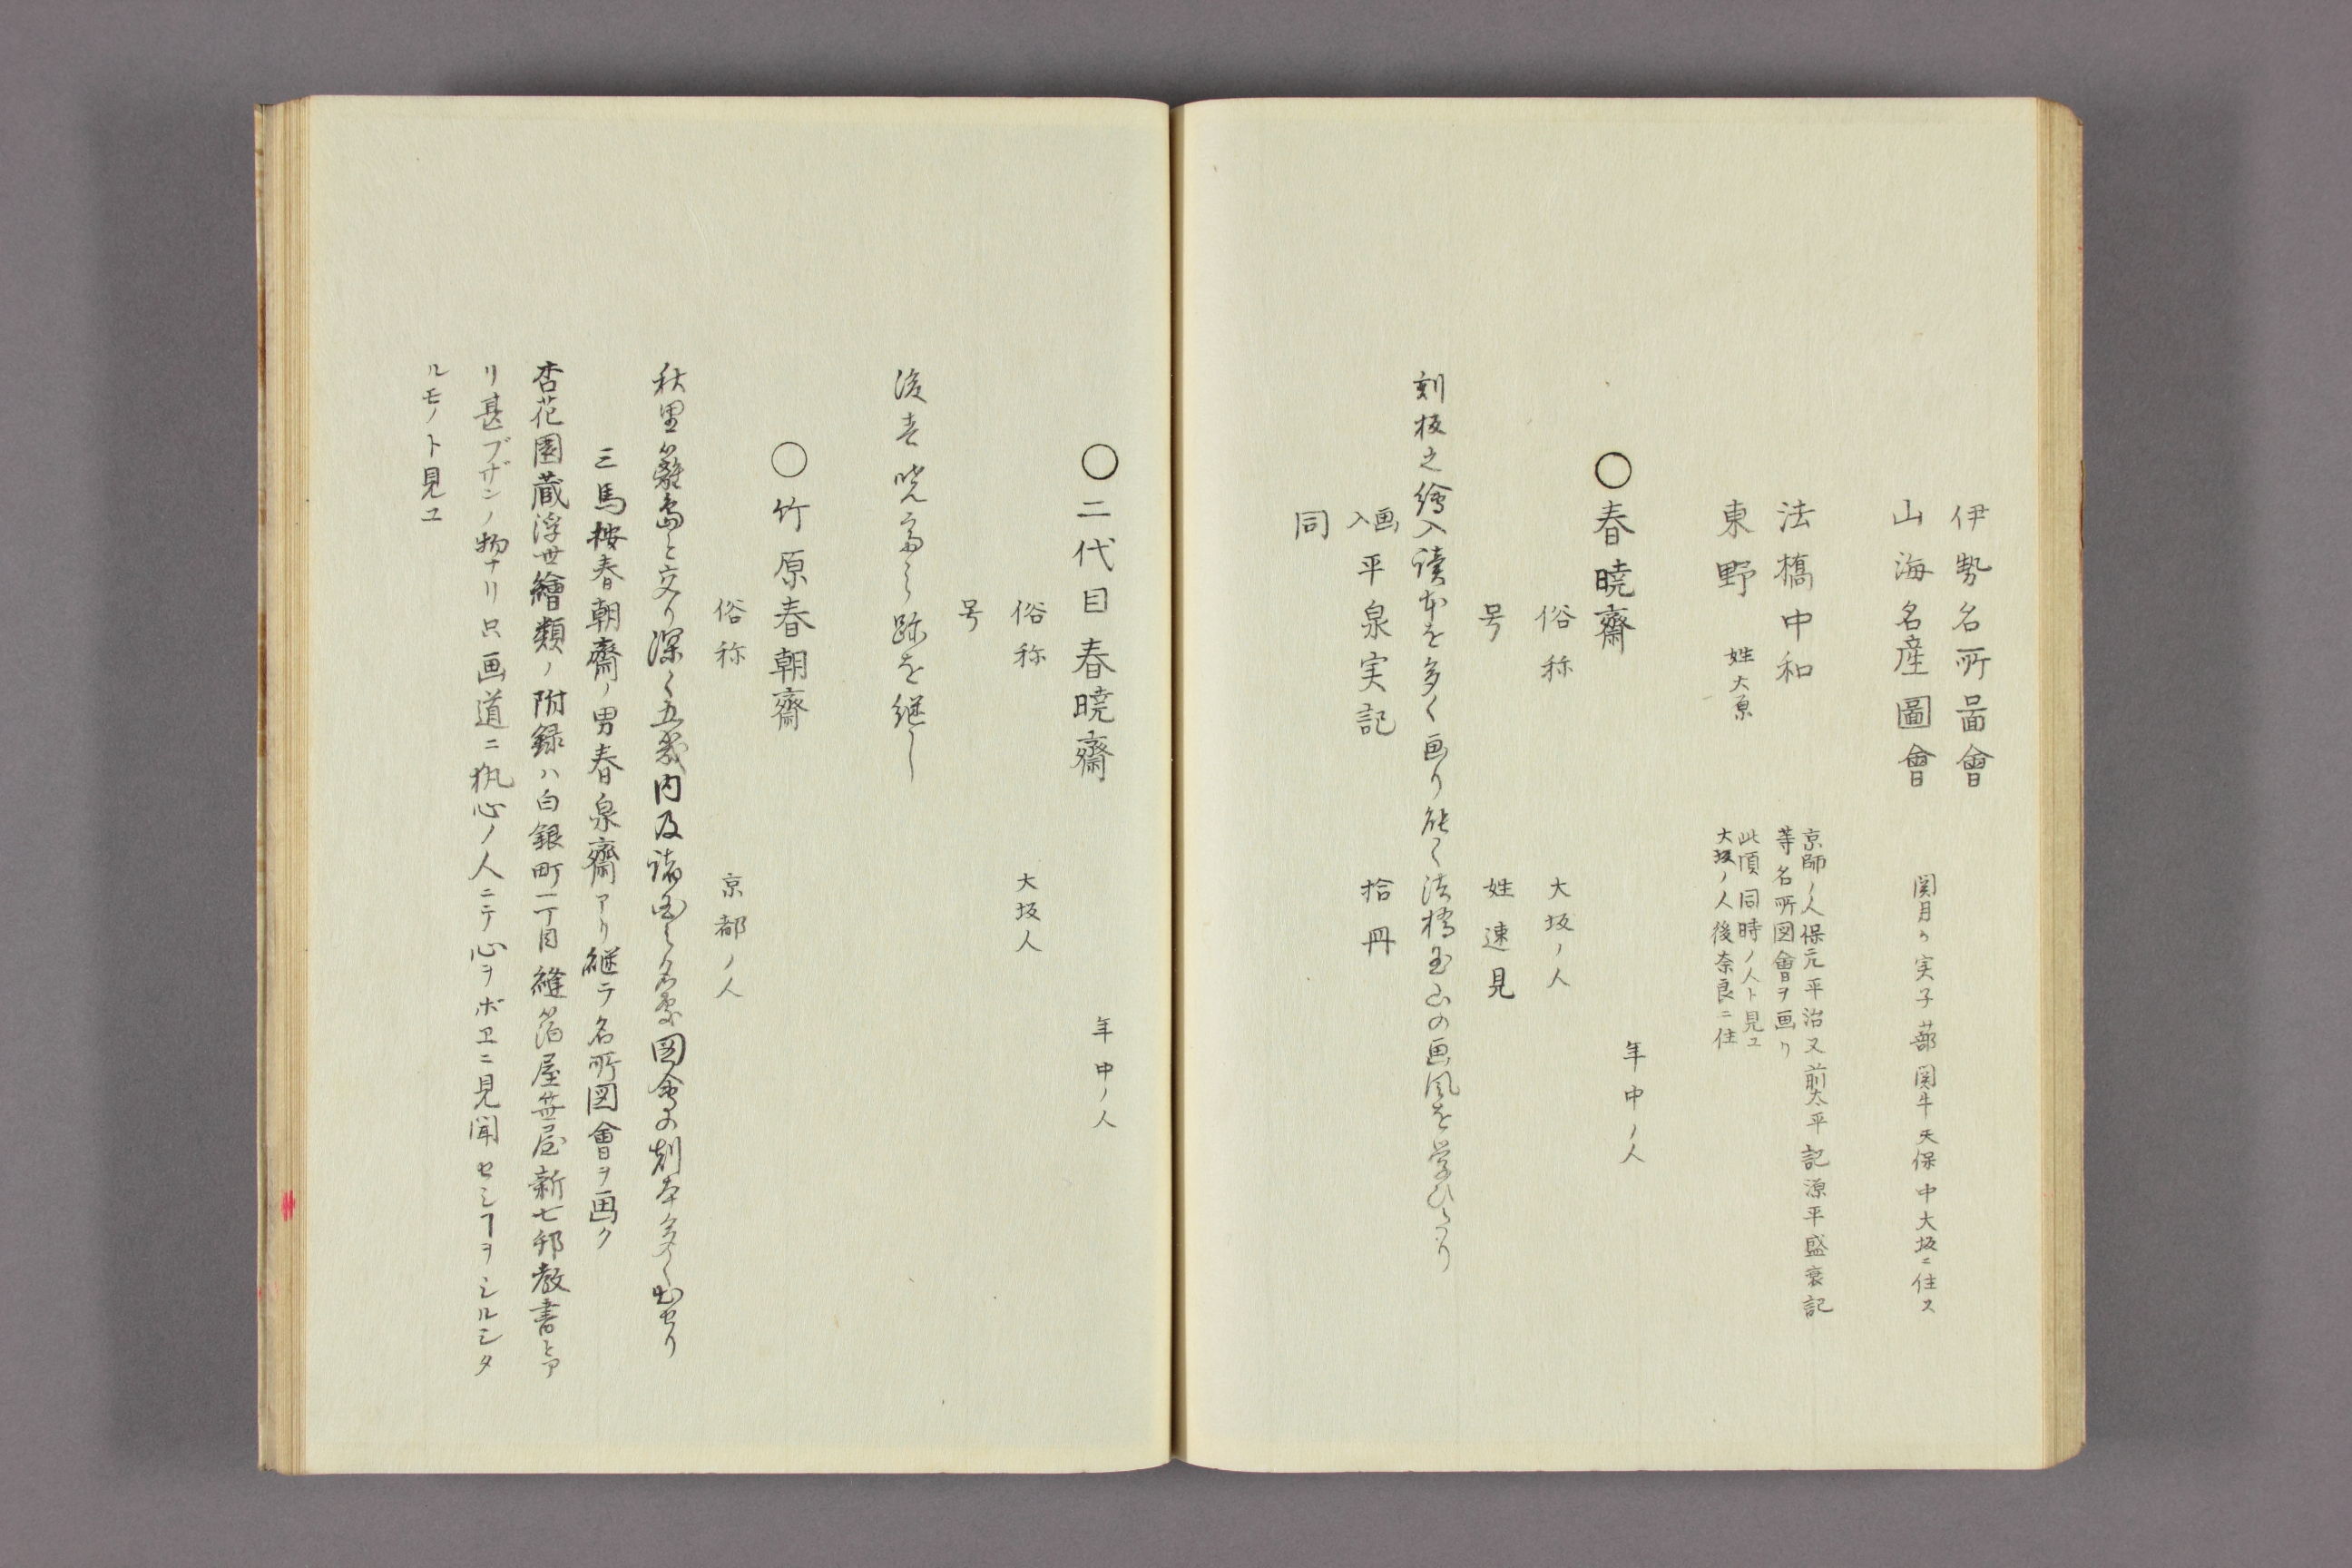 伊勢名所啚會
山海名産圖會
関月ノ実子蔀関牛天保中大坂ニ住ス
法橋中和
京師ノ人保元平治又前太平記源平盛衰記
等名所図會ヲ画リ
東野 姓大原
此頃同時ノ人ト見ユ
大坂ノ人後奈良ニ住
年中ノ人
○春暁齋
俗称 大坂ノ人
号 姓速見
刻板之繪入読本を多く画り能く法橋玉山の画風を学ひたり
画入平泉実記 拾冊
同
年中ノ人
○二代目春暁齋
俗称 大坂人
号
後春暁斎の跡を継し
○竹原春朝齋
俗称 京都ノ人
秋里籬島と交り深く五畿内及諸国の名所図會の刻本多く出せり
三馬按春朝齋ノ男春泉齋アリ継テ名所図會ヲ画ク
杏花園蔵浮世繪類ノ附録ハ白銀町一丁目縫箔屋笹屋新七邦教書とア
リ甚ブザンノ物ナリ只画道ニ執心ノ人ニテ心ヲボヱニ見聞セシヿヲシルシタ
ルモノト見ユ